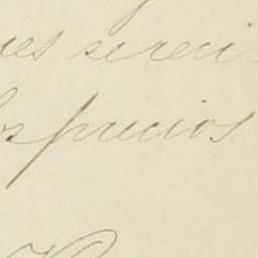 es sereci
os precios